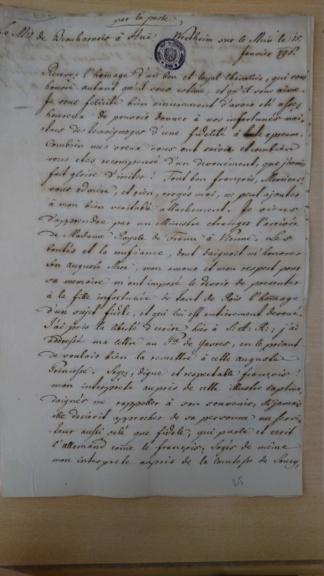 par la poste,
Le Mis de Beauharnois à Hüe. Wertheim sur le Mein le 15
fevrier 1796
Recevez l'hommage d'un bon et loyal chevalier, qui vous
honore autant qu'il vous estime, et qu'il vous aime.
Je vous félicite bien sincerement d'avoir été assez
heureux de pouvoir donner à vos infortunés maî-
tres de temoignages d'une fidelité à toute epreuve.
Combien mes voeux vous ont suivi et combien
vous etes recompensé d'un devouement que j'aurois
fait gloire d'imiter! Tout bon françois, Monsieur,
vous admire, et rien, croyés moi, ne peut ajouter
à mon bien veritable attachement. Je viens
d'apprendre par un Ministre étranger l'arrivée
de Madame Royale de France à Vienne. Les
bontés et la confiance, dont daignoit m'honorer
son auguste Mere, mon amour et mon respect pour
sa memoire m'ont imposé le devoir de presenter
à la fille infortunée de tant de Rois l'hommage
d'un sujet fidele, et qui lui est entierement devoué.
J'ai pris la liberté d'ecrire hier à S. A. R.; j'ai
adressé ma lettre au de Gavres, en le priant
de vouloir bien la remettre à cette auguste
Princesse. Soyez, digne et respectable françois!
mon interprete auprès de cette illustre orpheline,
daignés me rappeller à son souvenir, si jamais
elle desiroit approcher de sa personne un servi-
teur aussi zelé que fidele, qui parle et ecrit
l'allemand come le françois, soyés de même
mon interprete auprès de la Comtesse de Soucy,